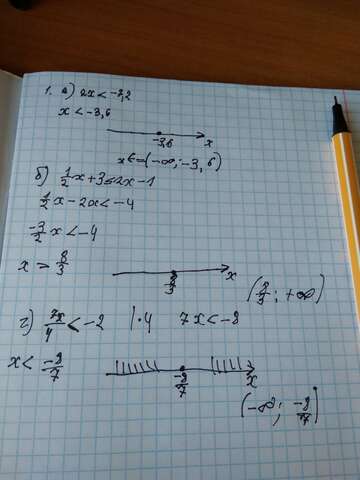 1. a) 2x < -7,2
x < -3,6
-3,6 x
x ∈ (-∞; -3,6)
б) 1/2 x + 3 ≤ 2x - 1
1/2 x - 2x < -4
-3/2 x < -4
x = 8/3
8/3 x
(8/3; +∞)
г) 7x/4 < -2 |·4 7x < -8
x < -8/7
-8/7 x
(-∞; -8/7)